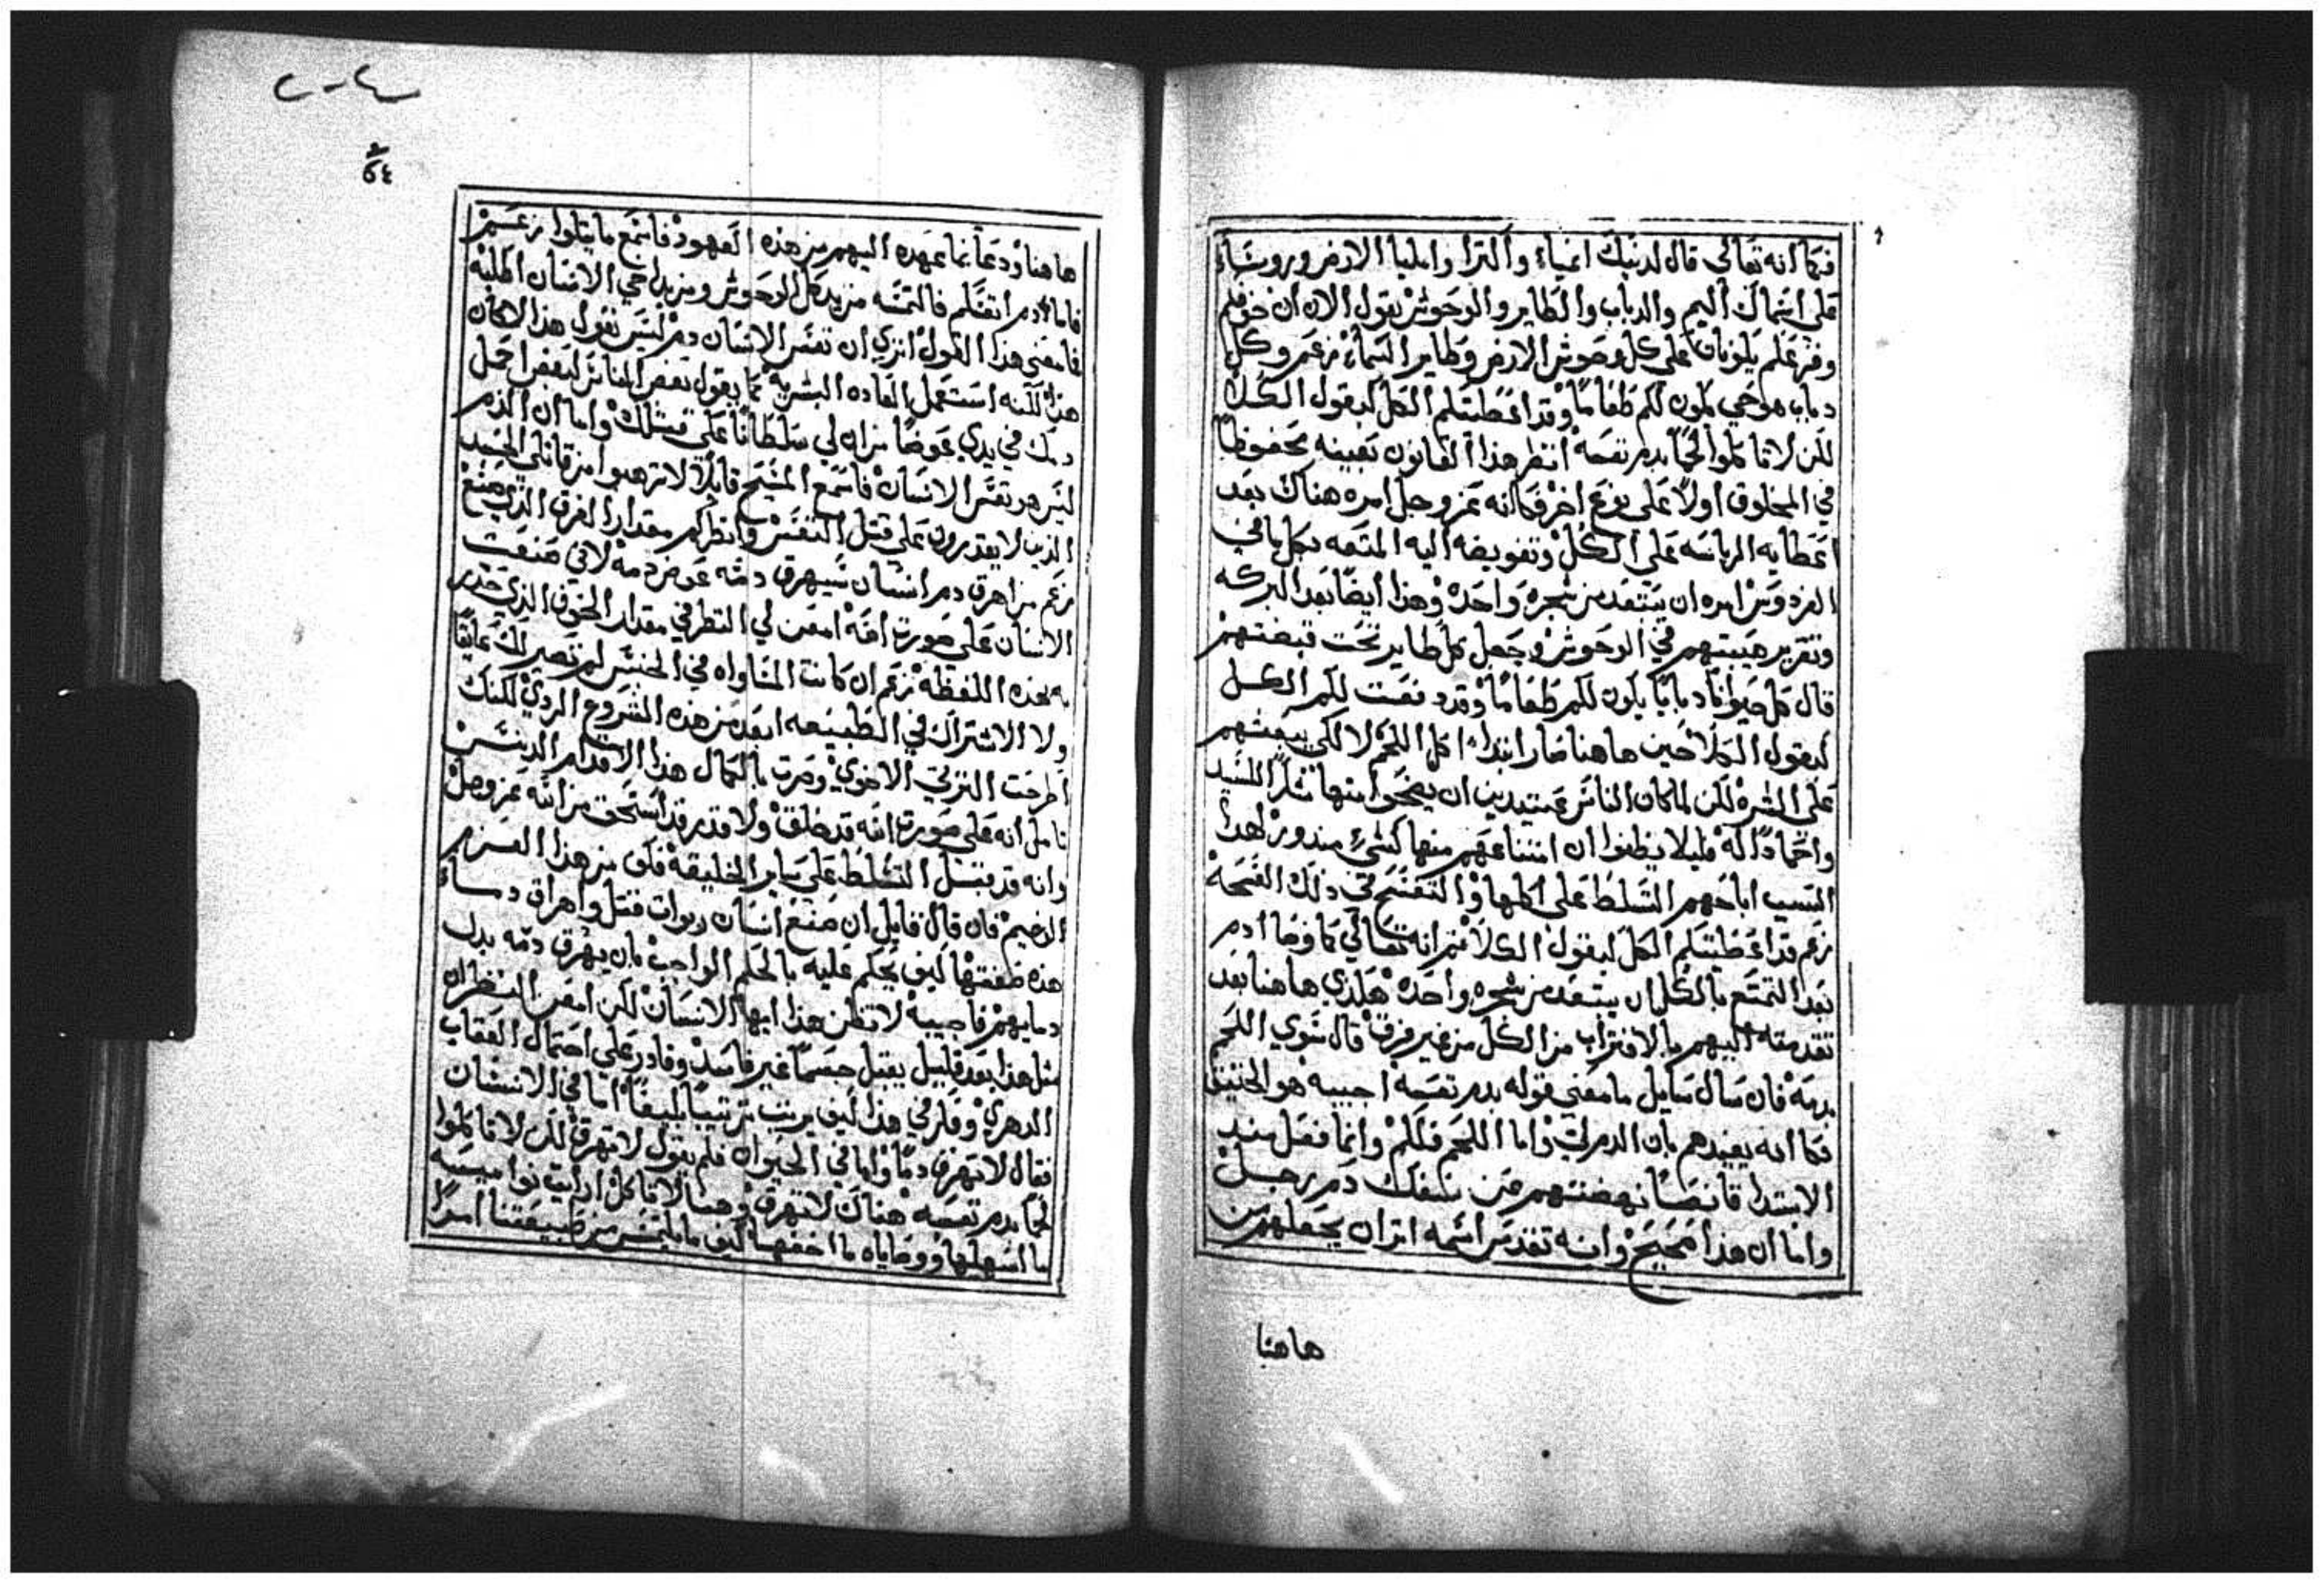 فكما انه تعالي قال لدنيك انمياء واكترا واملیا الارض وروسا
علي اسماك اليم والدباب والطاير والوحوش يقول الان ان خوفكم
وفزعكم يكونان علي كل وحوش الارض وطاير السماء زعم وكل
دباب هو حي يكون لكم طعاما وقد اعطيتكم الكل كبقول الكلا
لكن لا تاكلوا لحما بدم نفسه انظر هذا القانون بعينه محفوظا
في المخلوق اولا علي نوع اخر فكما انه عز وجل امره هناك بعد
اعطايه الرياسه علي الكل وتفويضه اليه المتعه بكل ما في
الفردوس امره ان يبتعد من شجره واحده وهذا ايضا بعد البركه
وتقرير هيبتهم في الوحوش وجعل كل طاير تحت قبضتهم
قال كل حيوانا دبابا يكون لكم طعاما وقد دفعت لكم الكل
كبقول الكلا حين هاهنا صار ابتداء اكل اللحم لا لكي يبعثهم
علي الشره لكن لما كان الناس عتيدين ان يضحوا منها شكرا للسيد
واحمادا له فليلا يظنوا ان امتناعهم منها كشيء مندور لهدا
السبب اباحهم التسلط علي اكلها والتفسح في ذلك الفسحه
زعم قد اعطيتكم الكل كبقول الكلا ثم انه تعالي كما وصا ادم
بعد التمتع بالكل ان يبتعد من شجره واحده هكدي هاهنا بعد
تقدمته اليهم بالاقتراب من الكل من غير فرق قال سوي اللحم
بدمه فان سال سايل ما معني قوله بدم نفسه اجيبه هو الخنيق
فكما انه يفيدهم بان الدم لي واما اللحم فلكم وانما فعل مند
الابتدا قانصا نهضتهم عن سفك دم رجل
واما ان هذا صحيح وانه تقدس اسمه اثر ان يجعلهم من
هاهنا
٥٤
هاهنا ودعا نما عهده اليهم من هذه العهود فاسمع ما يتلوا زعم
فاما دم انفسكم فالتمسه من يد كل الوحوش ومن يد اخي الانسان اطلبه
فما معني هذا القول اتري ان نفس الانسان دم ليس نقول هذا لا كان
هذا لكنه استعمل العاده البشريه كما يقول بعض الناس لبعض احمل
دمك في يدي عوضا من ان لي سلطانا علي قتلك واما ان الدم
ليس هو نفس الانسان فاسمع المسيح قايلا لا ترهبوا من قاتلي الجسد
الذين لا يقدرون علي قتل النفس وانظر كم مقدار الفرق الذي صنع
زعم من اهرق دم انسان سيهرق دمه عوض دمه لاني صنعت
الانسان علي صورت الله امعن لي النظر في مقدار الخوف الذي حدر
به بهذه اللفظه زعم ان كانت المساواه في الجنس لم تصير لك عايقا
ولا الاشتراك في الطبيعه ابعدك من هذه المشروع الردي لكنك
اطرحت الترثي الاخوي وصرت بالكمال هذا الاقدام الدنس
تامل انه علي صورت الله قد خلق ولا قدر قد استحق من الله عز وجل
وانه قد قبل التسلط علي ساير الخليقه فكف من هذا العزم
الدميم فان قال قايل ان صنع انسان ربوات قتل واهراق دماء
هذه صفتها كيف يحكم عليه بالحكم الواجب بان يهرق دمه بدل
دمايهم فاجيبه لا تظن هذا ايها الانسان لكن امعن النظر ان
مثل هذا بعد قليل يقبل جسما غير فاسد وقادر علي احتمال العقاب
الدهري وفكر في هذا كيف يرتب ترتيبا بليغا اما في الانسان
فقال لا تهرق دما واما في الحيوان فلم يقول لا تهرق لكن لا تاكلوا
لحما بدم نفسه هناك لا تهرق وهنا لا تاكل ارايت نواميسه
ما اسهلها ووصاياه ما اخفها كيف ما يلتمس من طبيعتنا امرا